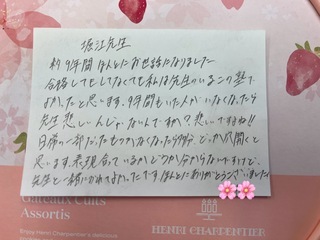 堀江先生
約9年間ほんとにお世話になりました
合格しててもしてなくても私は先生のいるこの塾で
よかったと思います。9年間もいた人がいなくなったら
先生悲しいんじゃないんですか？悲しいですね!!
日常の一部だったものがなくなったら多分どっか穴開くと
思います。表現合っているかどうか分からないですけど、
先生と一緒にがんばれてよかったです。ほんとにありがとうございました
Gateaux Cuits
Assortis
Enjoy Henri Charpentier's
HENRI CHARPENTIER